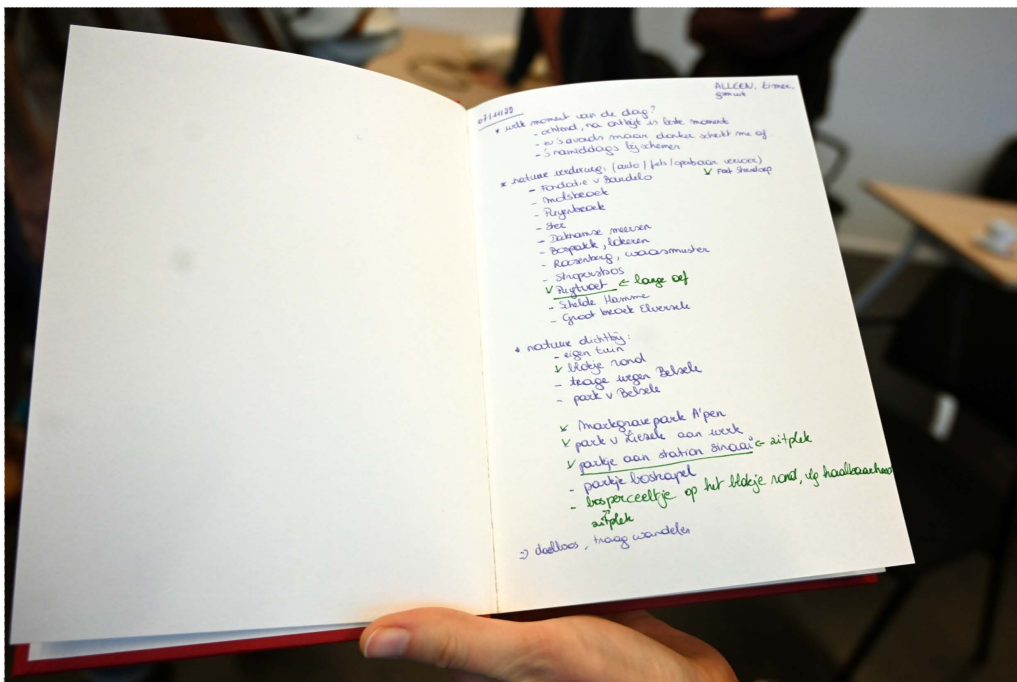 ALLEEN, timer,
07/11/22
* welk moment van de dag?
- ochtend, na ontbijt is beste moment
- 's avonds maar donker schrikt me af
- 's namiddags bij schemer
* natuur verderweg: (auto / fiets / openbaar vervoer)
- Fondatie v Bandelo
v Fort Steendorp
- Molsbroek
- Puyenbroek
- Ster
- Daknamse meersen
- Bospark, Lokeren
- Roosenberg, waasmunster
- Stropersbos
v Puytvoet ← lange oef
- Schelde Hamme
- Groot broek Elversele
* natuur dichtbij:
- eigen tuin
v blokje rond
- trage wegen Belsele
- park v Belsele
v Markgravepark A'pen
v park v Liesele aan werk
v parkje aan station Sinaai ← zitplek
- parkje boskapel
- bosperceeltje op het blokje rond, vlg haalbaarheid
zitplek
=> doelloos, traag wandelen